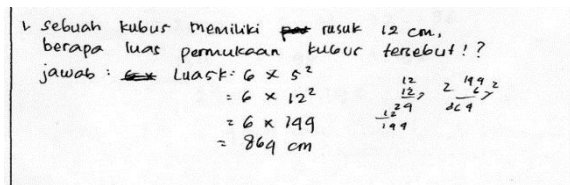 1. sebuah kubus memiliki rusuk 12 cm,
berapa luas permukaan kubus tersebut!?
jawab : Luas k : 6 x s²
= 6 x 12²
= 6 x 144
= 864 cm
12
12 x
24
12
144
144 2
6 x
864